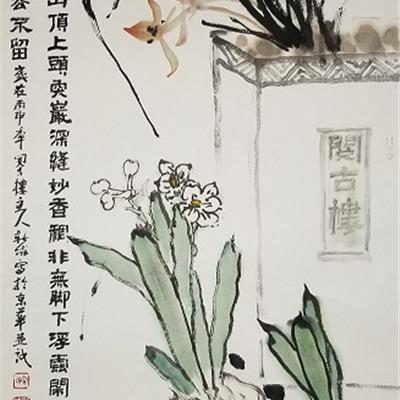 閱古樓
山頂上頭突巖深縫妙香稠非無脚下浮雲鬧
去不留 歲在丙申年閱古樓主人寫於京華並識